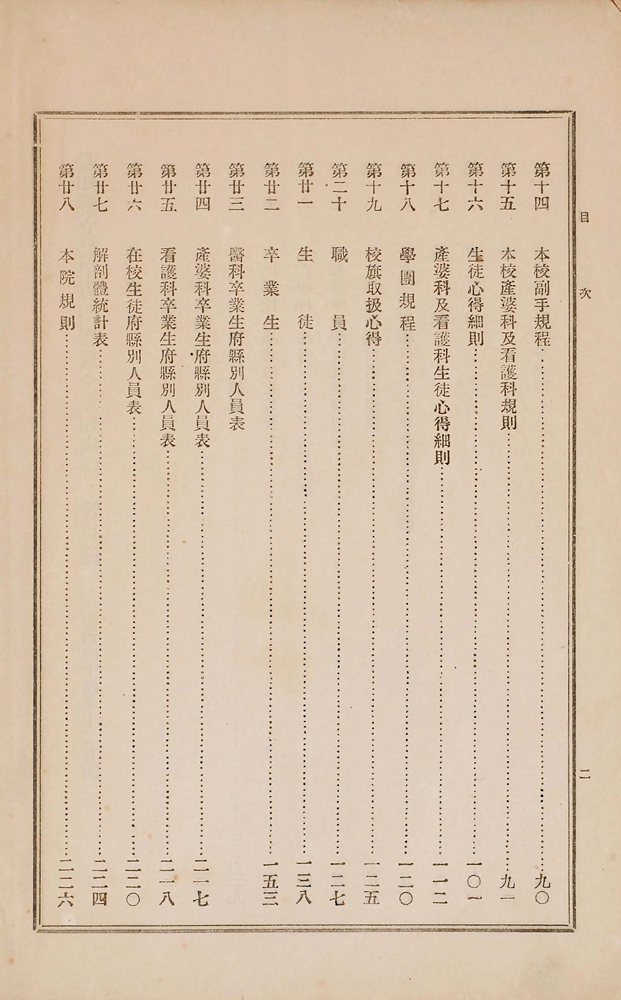 目次
二
第十四 本校副手規程……九〇
第十五 本校產婆科及看護科規則……九一
第十六 生徒心得細則……一〇一
第十七 產婆科及看護科生徒心得細則……一一二
第十八 學團規程……一二〇
第十九 校旗取扱心得……一二五
第二十 職員……一二七
第廿一 生徒……一三八
第廿二 卒業生……一五三
第廿三 醫科卒業生府縣別人員表
第廿四 產婆科卒業生府縣別人員表……二一七
第廿五 看護科卒業生府縣別人員表……二一八
第廿六 在校生徒府縣別人員表……二二〇
第廿七 解剖體統計表……二二四
第廿八 本院規則……二二六